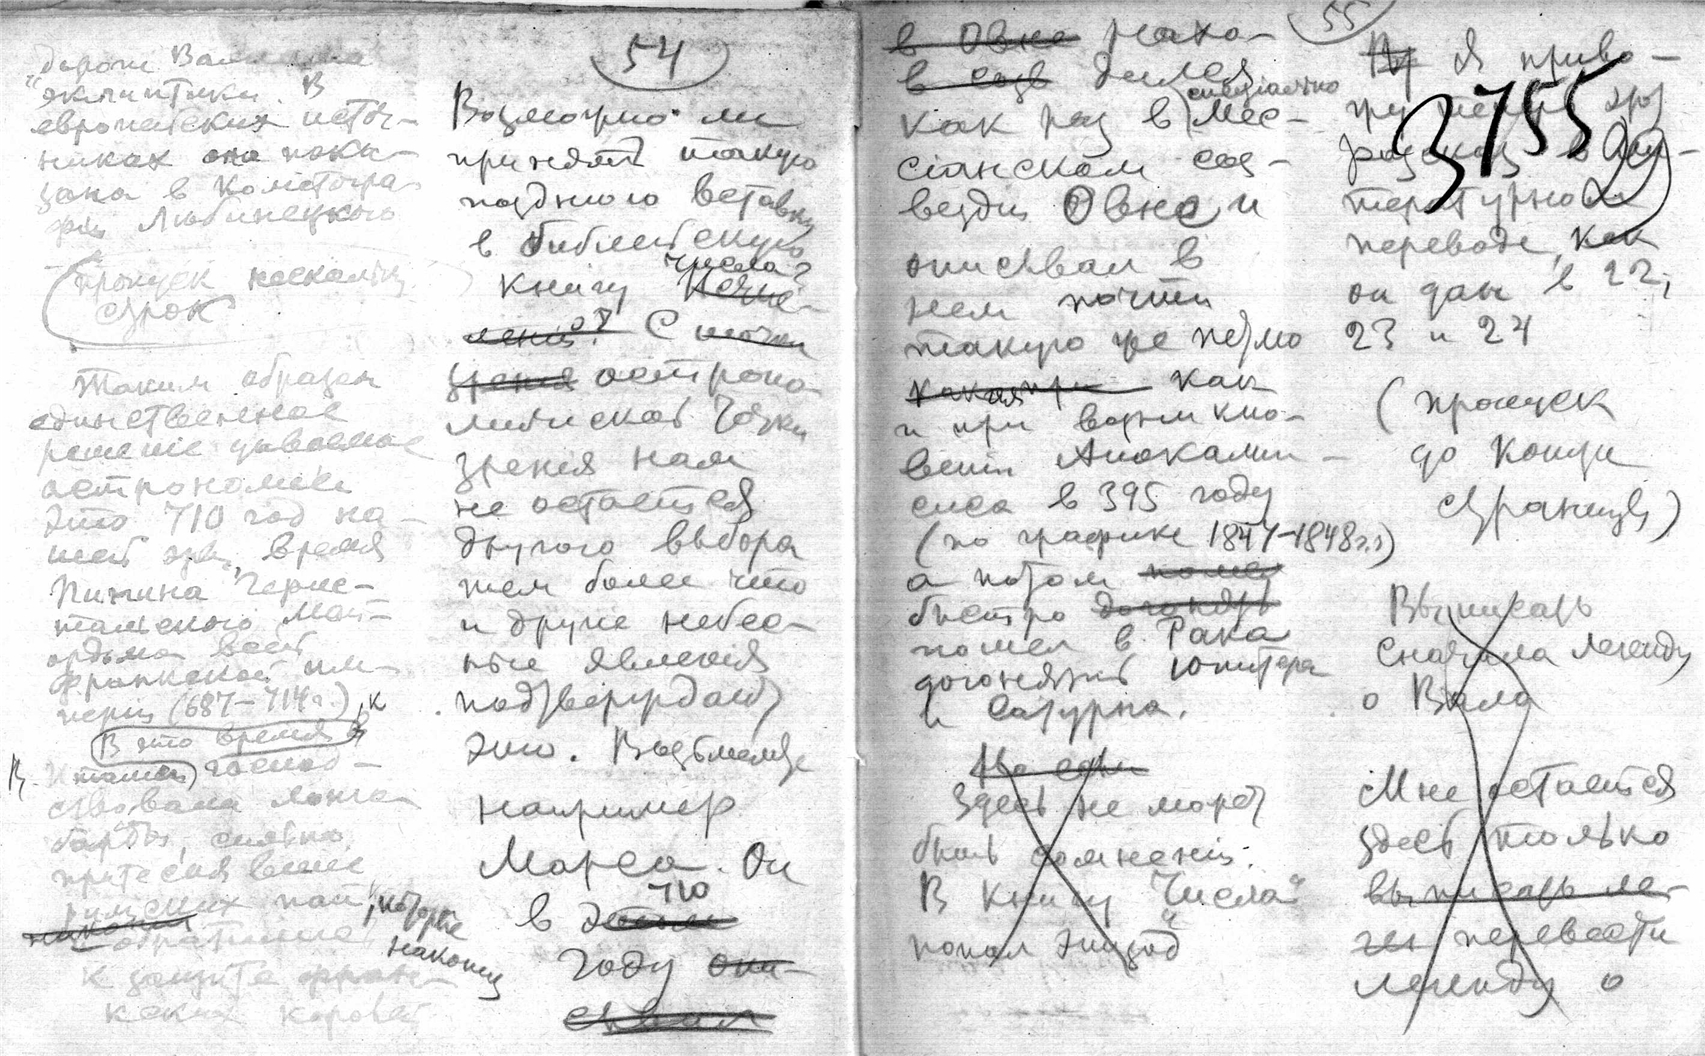 54
дороги Валаама
эклиптики. В
европейских источ-
никах она пока-
зана в Кометогра-
фiи Любинецкаго
(пропуск нескольких
строк
Таким образом
единственное
решенiе даваемое
астрономiей
это 710 год на-
шей эры, время
Пипина Герис-
тальского Май-
ордома всей
франкской им-
перiи (687–714 г.), к
В это время в
Италiи господ-
ствовали лонго-
барды, сильно
притеснявшие
римских пап, которые
наконец обратились наконец
к защите фран-
кских королей
Возможно ли
принять такую
позднюю вставку
в библейскую
книгу Исчис- Числа?
ленiя? С точки
зренiя астроно-
мической точки
зрения нам
не остается
другого выбора
тем более что
и другiе небес-
ные явленiя
подтверждают
это. Возьмемте
например
Марса. Он
в 710
году опи-
сывал
55
в Овне нахо-
в созв дился
как раз в специально Мес-
сiанском соз-
вездiи Овна и
описывал в
нем почти
такую же петлю
как
и при возникно-
венiи Апокалип-
сиса в 395 году
(по графике 1847–1848 г.г)
а потом
быстро догонять
пошел в Рака
догонять Юпитера
и Сатурна.
Здесь не может
быть сомненiй.
В книгу "Числа"
попал эпизод
3755
Я приво-
жу теперь этот
разсказ в ли-
тературном
переводе, как
он дан в 22,
23 и 24
(пропуск
до конца
страницы)
Выписать
сначала легенду
о Вала
Мне остается
здесь только
выписать ле-
ген перевести
легенду о